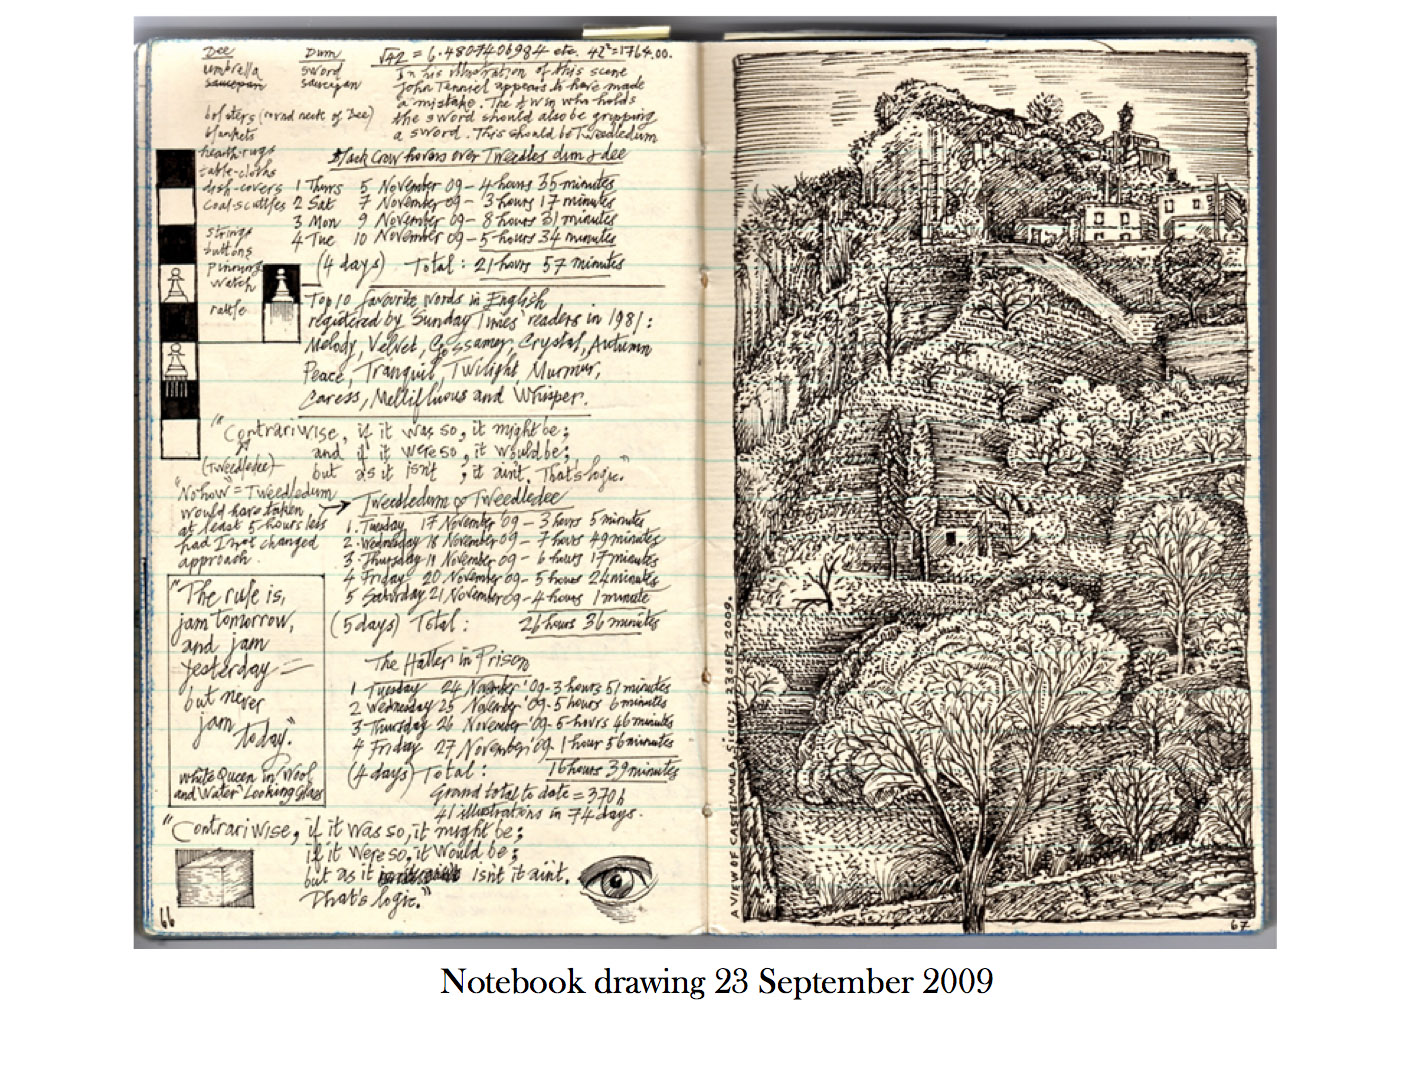 Dee
umbrella
saucepan
bolsters (round neck of Dee)
blankets
hearth-rugs
table-cloths
dish-covers
coal-scuttles
strings
buttons
watch
rattle
Dum
sword
saucepan
√42 = 6.4807406984 etc. 42²=1764.00.
In his illustration of this scene
John Tenniel appears to have made
a mistake. The twin who holds
the sword should also be gripping
a sword. This should be Tweedledum
Black Crow hovers over Tweedles dum & dee
1 Thurs 5 November 09 - 4 hours 35 minutes
2 Sat 7 November 09 - 3 hours 17 minutes
3 Mon 9 November 09 - 8 hours 31 minutes
4 Tue 10 November 09 - 5 hours 34 minutes
(4 days) Total: 21 hours 57 minutes
Top 10 favourite words in English
registered by 'Sunday Times' readers in 1981:
Melody, Velvet, Gossamer, Crystal, Autumn
Peace, Tranquil, Twilight Murmur,
Caress, Mellifluous and Whisper.
"Contrariwise, if it was so, it might be;
and if it were so, it would be;
but as it isn't, it ain't. That's logic."
(Tweedledee)
"Nohow" = Tweedledum
would have taken
at least 5 hours less
had I not changed
approach.
Tweedledum & Tweedledee
1. Tuesday 17 November '09 - 3 hours 5 minutes
2. Wednesday 18 November '09 - 7 hours 49 minutes
3. Thursday 19 November 09 - 6 hours 17 minutes
4 Friday 20 November 09 - 5 hours 24 minutes
5 Saturday 21 November 09 - 4 hours 1 minute
(5 days) Total: 26 hours 36 minutes
"The rule is,
jam tomorrow,
and jam
yesterday —
but never
jam
today."
White Queen in 'Wool
and Water' Looking Glass
The Hatter in Prison
1 Tuesday 24 November '09 - 3 hours 51 minutes
2 Wednesday 25 November '09 - 5 hours 6 minutes
3 Thursday 26 November '09 - 5 hours 46 minutes
4 Friday 27 November '09 1 hour 56 minutes
(4 days) Total: 16 hours 39 minutes
Grand total to date = 370h
41 illustrations in 74 days.
"Contrariwise, if it was so, it might be;
if it were so, it would be;
but as it isn't it ain't.
That's logic."
66
A VIEW OF CASTELMOLA. SICILY. 23 SEPT 2009.
67
Notebook drawing 23 September 2009